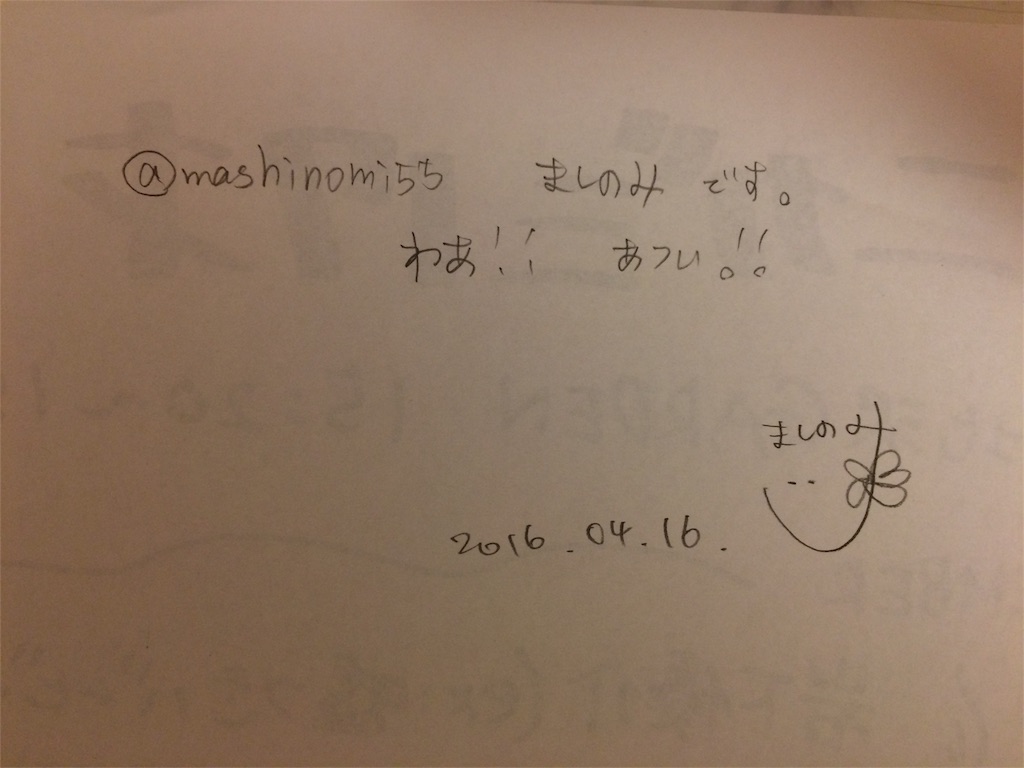 @mashinomi55 ましのみ です。
わあ!! あつい!!
ましのみ
2016.04.16.